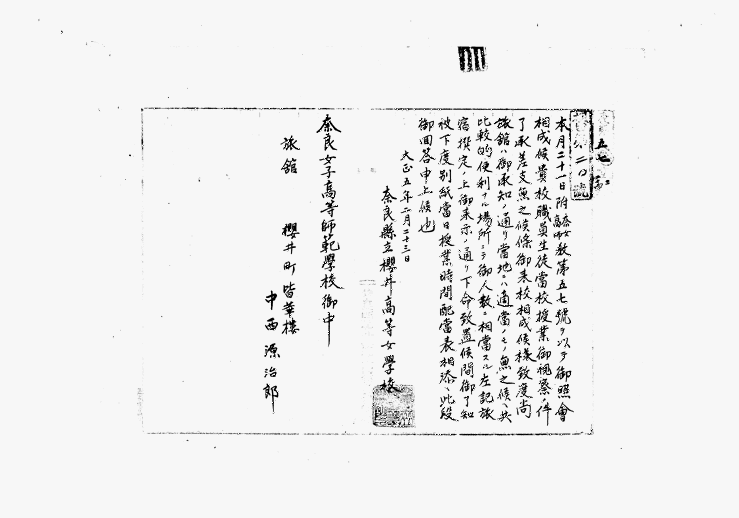 本月二十一日附奈女高師教第五七號ヲ以テ御照會
相成候貴校職員生徒當校授業御視察ノ件
了承差支無之候條御来校相成候様致度尚
旅舘ハ御承知ノ通リ當地ニハ適當ノモノ無之候ヘ共
比較的便利ナル場所ニテ御人数ニ相當スル左記旅
宿撰定ノ上御来示ノ通リ下命致置候間御了知
被下度別紙當日授業時間配當表相添ヘ此段
御回答申上候也
大正五年二月二十三日
奈良縣立櫻井高等女學校
奈良女子高等師範學校御中
旅舘 櫻井町皆華樓
中西源治郎